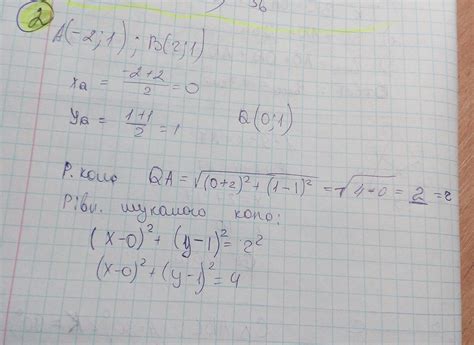 2
A(-2;1); B(2;1)
x_Q = \frac{-2+2}{2} = 0
y_Q = \frac{1+1}{2} = 1 Q(0;1)
Р. кола QA = \sqrt{(0+2)^2+(1-1)^2} = \sqrt{4-0} = 2 = r
Рівн. шуканого кола:
(x-0)^2 + (y-1)^2 = 2^2
(x-0)^2 + (y-1)^2 = 4